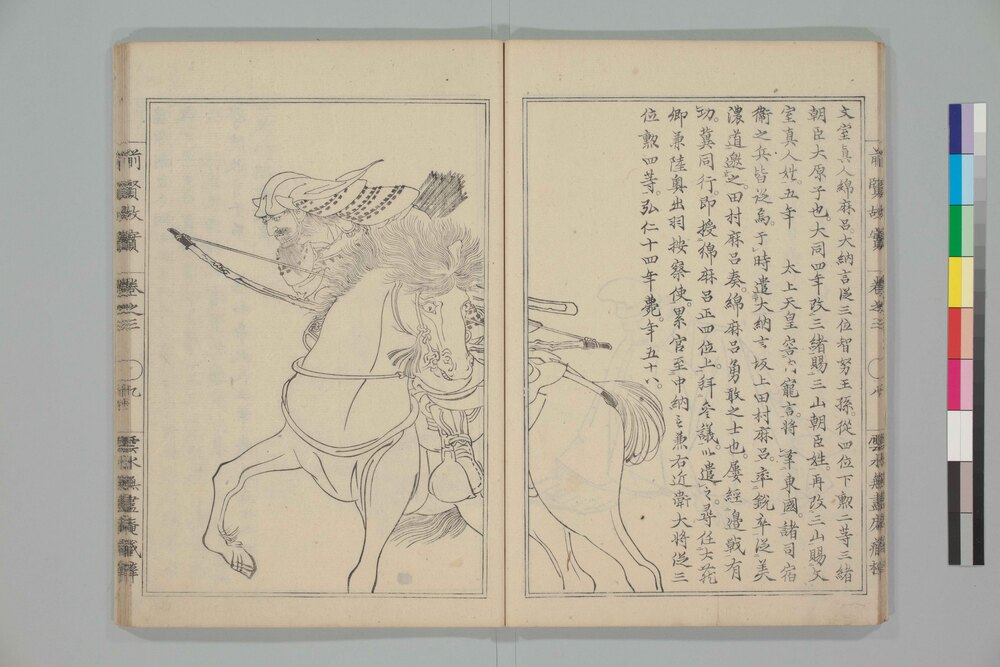 文室真人綿麻呂大納言從三位智努王孫。從四位下勲二等三緒
朝臣大原子也。大同四年改三緒賜三山朝臣姓。再改三山賜文
室真人姓。五年　太上天皇
衛之兵皆從焉。于時遣大納言坂上田村麻呂。率銳卒從美
濃道邀之。田村麻呂奏。綿麻呂勇敢之士也。屢經邊戰有
功。冀同行。即授綿麻呂正四位上。拜參議。以遣之。尋任大蔵
卿兼陸奥出羽按察使。累官至中納言兼右近衛大将從三
位勲四等。弘仁十四年薨。年五十八。
前賢故實
卷之三
前賢故實
卷之三
雲水無盡庵藏梓